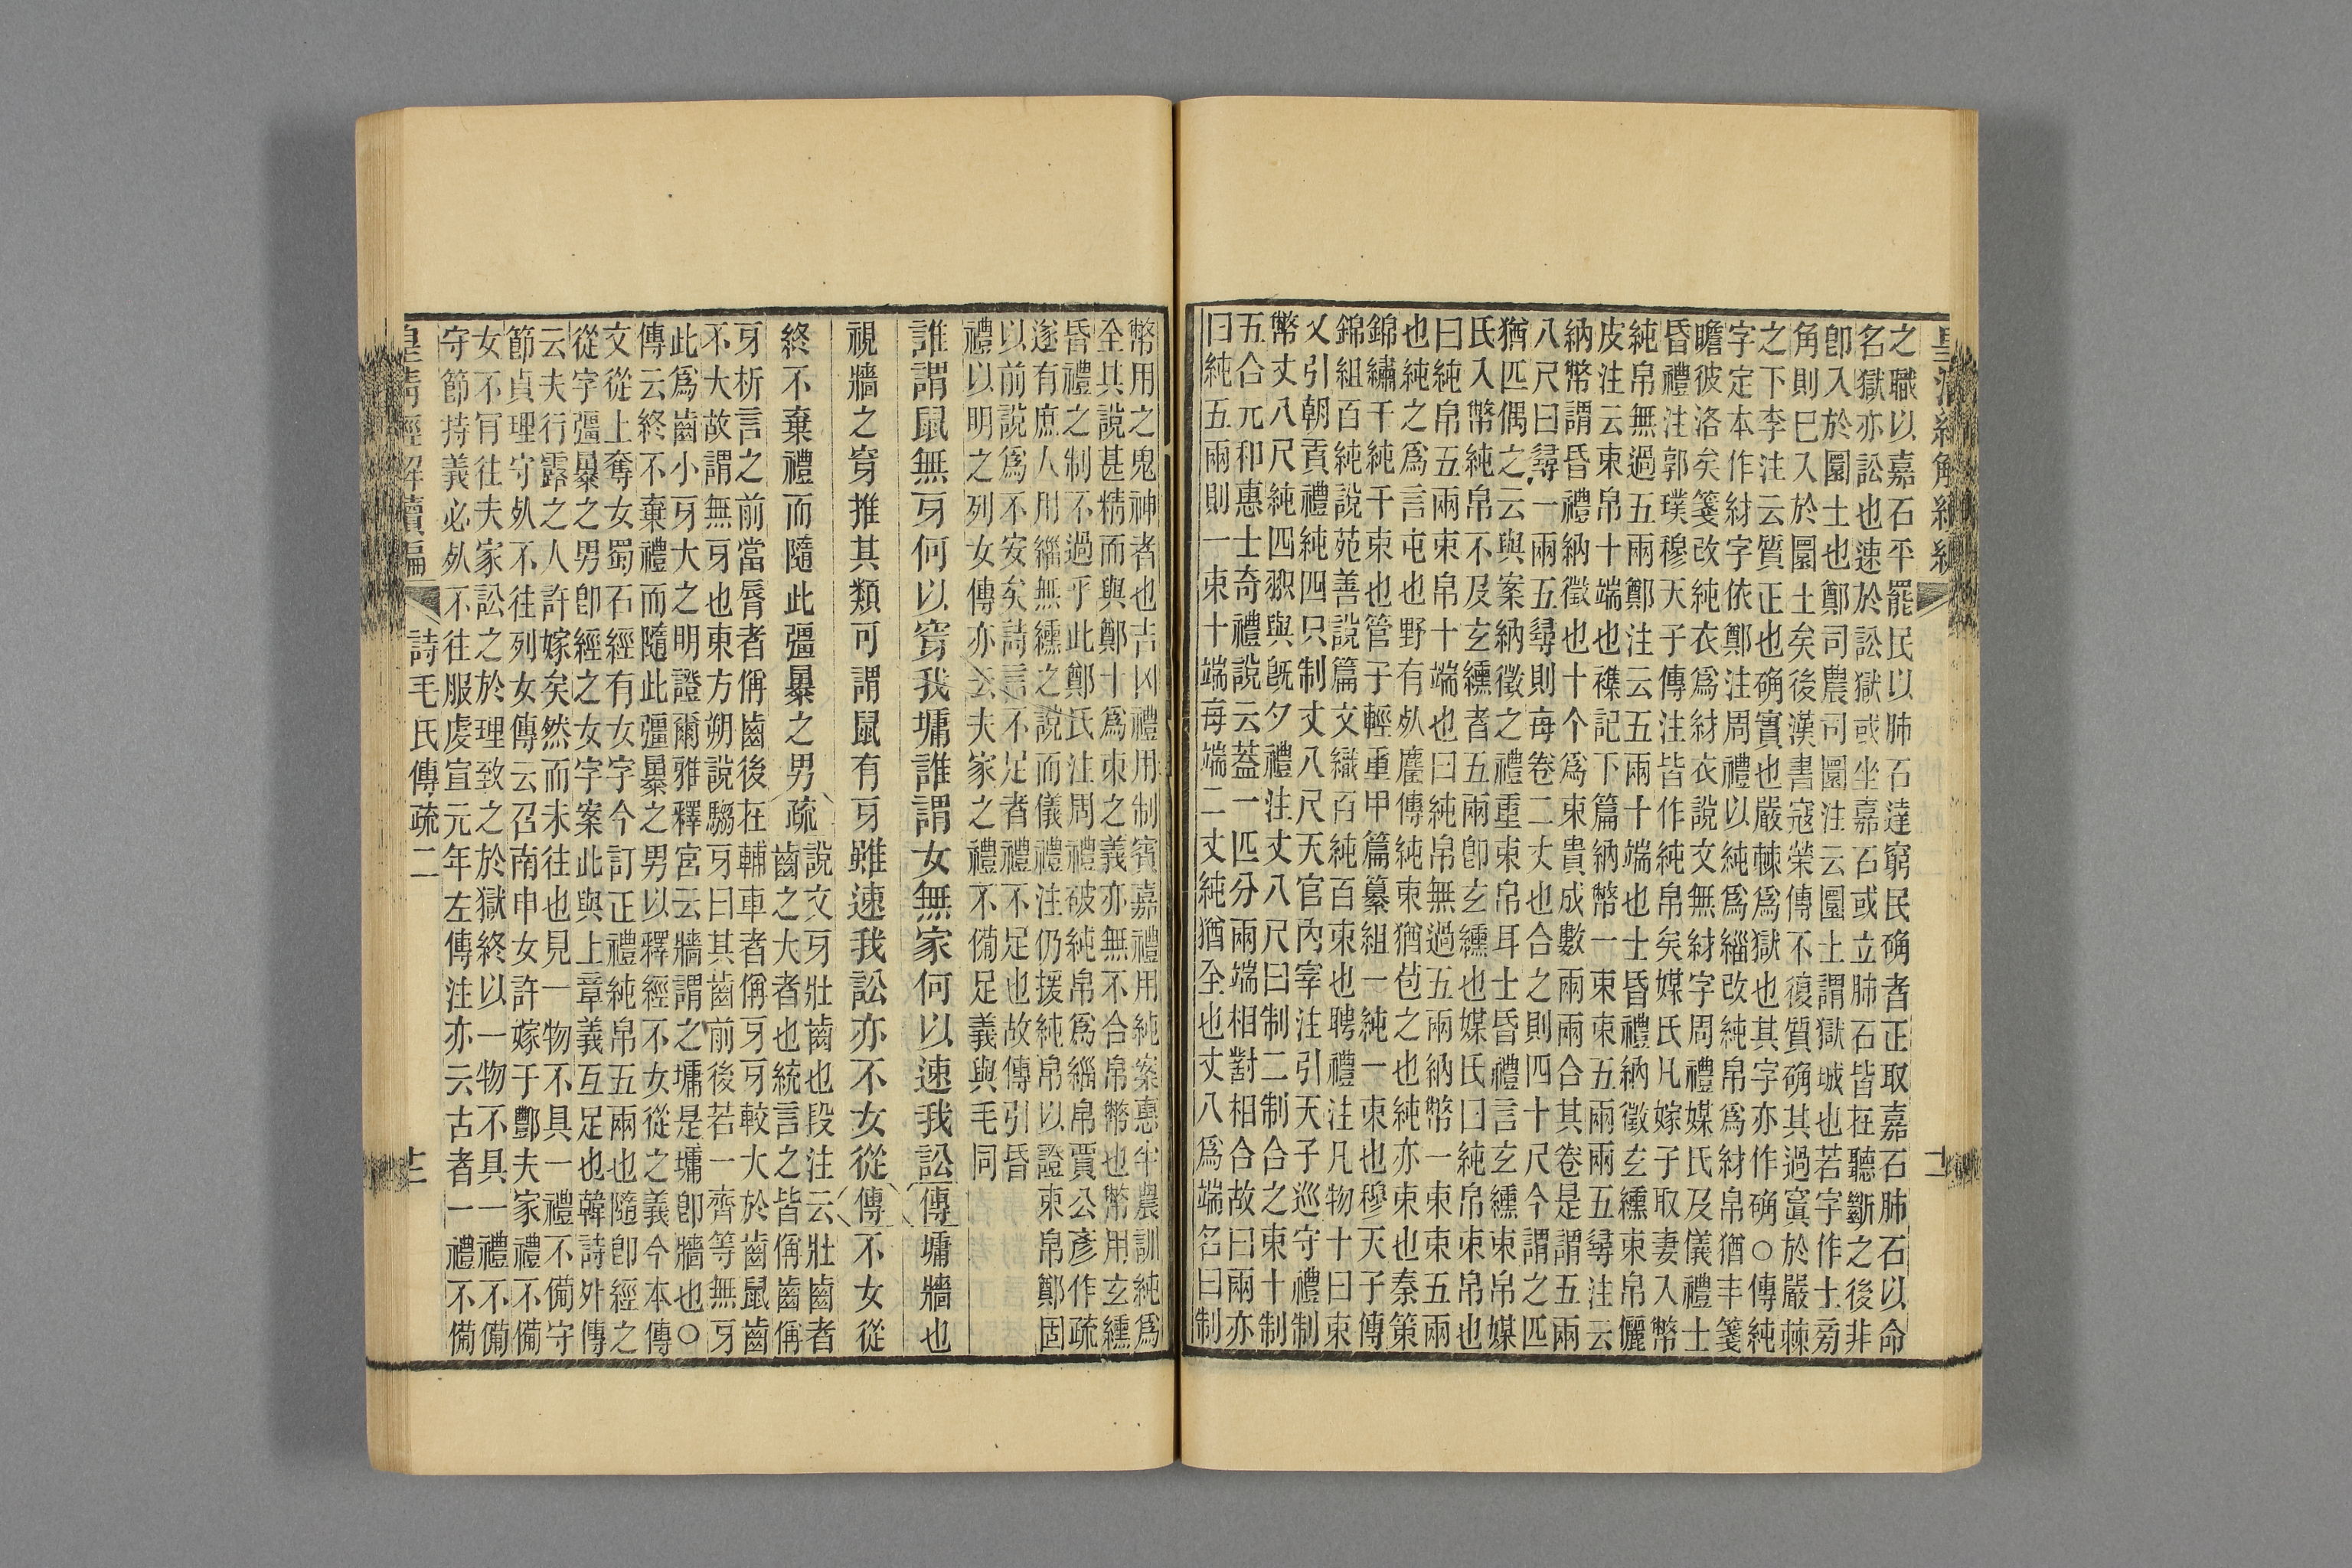 皇清經解續編
之職以嘉石平罷民以肺石達窮民确者正取嘉石肺石以命
名獄亦訟也速於訟獄或坐嘉石或立肺石皆在聽斷之後非
卽入於圜土也鄭司農司圜注云圜土謂獄城也若字作土旁
角則巳入於圜土矣後漢書寇榮傳不復質确其過寘於嚴棘
之下李注云質正也确實也嚴棘爲獄也其字亦作确○傳純
字定本作紂字依鄭注周禮以純爲緇改純帛爲紂帛猶丰箋
瞻彼洛矣箋改純衣爲紂衣說文無紂字周禮媒氏及儀禮士
昏禮注郭璞穆天子傳注皆作純帛矣媒氏凡嫁子取妻入幣
純帛無過五兩鄭注云五兩十端也士昏禮納徵玄纁束帛儷
皮注云束帛十端也襍記下篇納幣一束束五兩兩五尋注云
納幣謂昏禮納徵也十个爲束貴成數兩兩合其卷是謂五兩
八尺曰尋一兩五尋則每卷二丈也合之則四十尺今謂之匹
猶匹偶之云與案納徵之禮重束帛耳士昏禮言玄纁束帛媒
氏入幣純帛不及玄纁者五兩卽玄纁也媒氏曰純帛束帛也
曰純帛五兩束帛十端也曰純帛無過五兩納幣一束束五兩
也純之爲言屯也野有死麕傳純束猶苞之也純亦束也秦策
錦繡千純純千束也管子輕重甲篇纂組一純一束也穆天子傳
錦組百純說苑善說篇文織百純百束也聘禮注凡物十曰束
又引朝貢禮純四只制丈八尺天官內宰注引天子巡守禮制
幣丈八尺純四與旣夕禮注丈八尺曰制二制合之束十制
五合元和惠士奇禮說云蓋一匹分兩端相對相合故曰兩亦
曰純五兩則一束十端每端二丈純猶全也丈八爲端名曰制
幣用之鬼神者也吉凶禮用制賓嘉禮用純案惠半農訓純爲
全其說甚精而與鄭十爲束之義亦無不合帛幣也幣用玄纁
昏禮之制不過乎此鄭氏注周禮破純帛爲緇帛賈公彥作疏
遂有庶人用緇無纁之說而儀禮注仍援純帛以證束帛鄭固
以前說爲不安矣詩言不足者禮不足也故傳引昏
禮以明之列女傳亦云夫家之禮不備足義與毛同
誰謂鼠無牙何以穿我墉誰謂女無家何以速我訟傳墉牆也
視牆之穿推其類可謂鼠有牙雖速我訟亦不女從傳不女從
終不棄禮而隨此彊暴之男疏
說文牙壯齒也段注云壯齒者
齒之大者也統言之皆偁齒偁
牙析言之前當脣者偁齒後在輔車者偁牙牙較大於齒鼠齒
不大故謂無牙也東方朔說騶牙曰其齒前後若一齊等無牙
此爲齒小牙大之明證爾雅釋宮云牆謂之墉是墉卽牆也○
傳云終不棄禮而隨此彊暴之男以釋經不女從之義今本傳
文從上奪女蜀石經有女字今訂正禮純帛五兩也隨卽經之
從字彊暴之男卽經之女字案此與上章義互足也韓詩外傳
云夫行露之人許嫁矣然而未往也見一物不具一禮不備守
節貞理守死不往列女傳云召南申女許嫁于酆夫家禮不備
女不肎往夫家訟之於理致之於獄終以一物不具一禮不備
守節持義必死不往服虔宣元年左傳注亦云古者一禮不備
皇清經解續編 詩毛氏傳疏二 十二